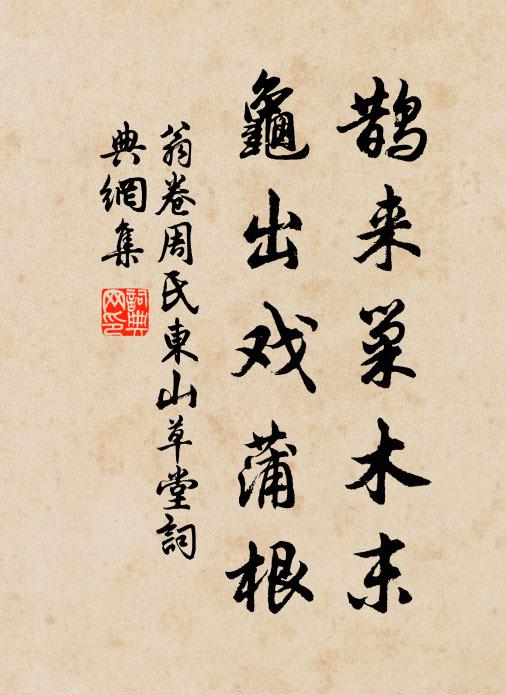 鹊来巢木末
龜出戏蒲根
翁卷周氏東山草堂詞
典網集
詞典網印